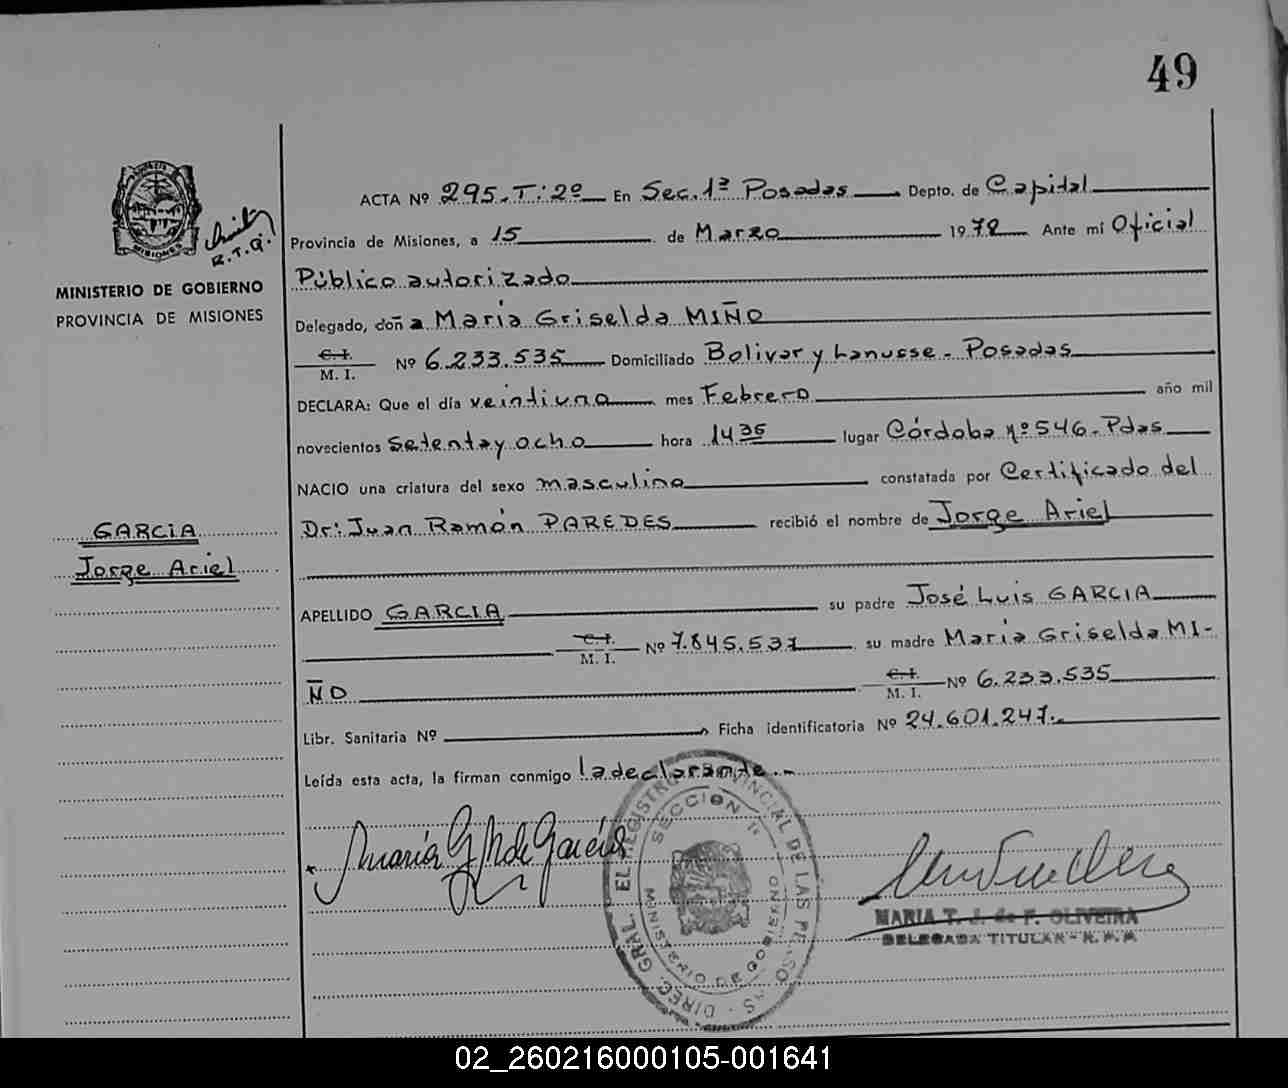 49
ACTA Nº 295.T:2º En Sec.1ª Posadas Depto. de Capital
R.T.G.
Provincia de Misiones, a 15 de Marzo 1978 Ante mi Oficial
Público autorizado
MINISTERIO DE GOBIERNO
PROVINCIA DE MISIONES
MISIONES
Delegado, doña Maria Griselda MIÑO
C.I.
M. I. Nº 6.233.535 Domiciliado Bolivar y Lanusse - Posadas
DECLARA: Que el día veintiuno mes Febrero año mil
novecientos setenta y ocho hora 1435 lugar Córdoba nº 546 - Pdas
NACIO una criatura del sexo masculino constatada por Certificado del
Dr: Juan Ramón PAREDES recibió el nombre de Jorge Ariel
GARCIA
Jorge Ariel
APELLIDO GARCIA su padre José Luis GARCIA
C.I.
M. I. Nº 7.845.531 su madre Maria Griselda MI-
ÑO C.I.
M. I. Nº 6.233.535
Libr. Sanitaria Nº Ficha identificatoria Nº 24.601.247.
Leída esta acta, la firman conmigo la declarante.-
María G M de García
DIREC. GRAL. EL REGISTRO PROVINCIAL DE LAS PERSONAS
SECCION 1ª
MINISTERIO DE GOBIERNO
MARIA T. J. de F. OLIVEIRA
DELEGADA TITULAR - R.P.P.
02_260216000105-001641